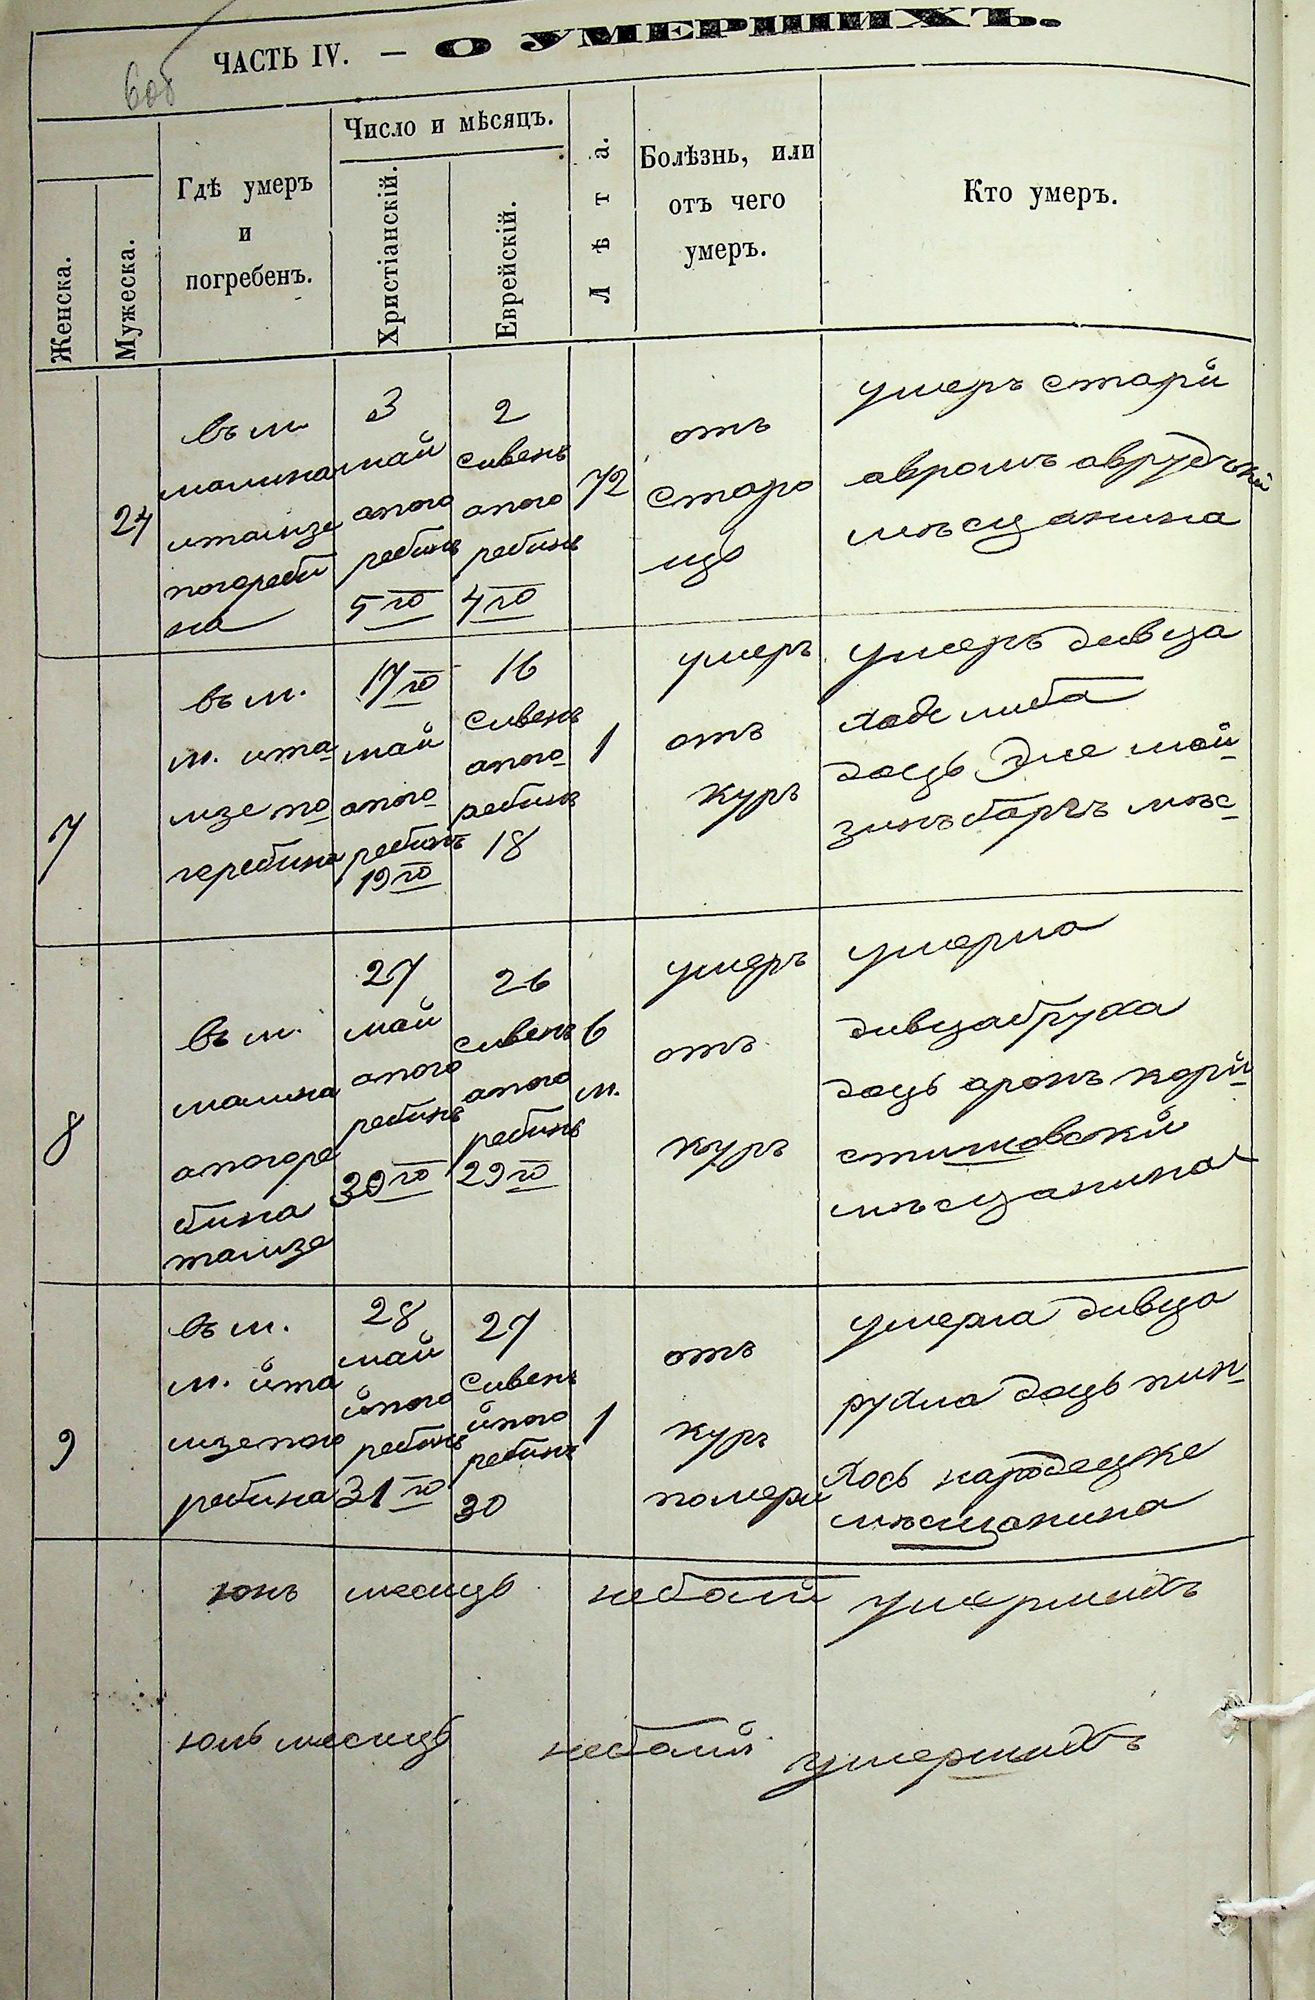 ЧАСТЬ IV. — О УМЕРШИХЪ.
6об
Женска.
Мужеска.
Гдѣ умеръ
и
погребенъ.
Число и мѣсяцъ.
Христіанскій.
Еврейскій.
Лѣта.
Болѣзнь, или
отъ чего
умеръ.
Кто умеръ.
24
въ м.
малина
итамзе
погреби
на
3
май
апого
ребинъ
5го
2
сивень
апого
ребинъ
4го
72
отъ
старо
ицъ
умеръ старй
авромъ аврудскій
мѣсцанина
7
въ м.
м. ита
мзе по
геребина
17го
май
апого
ребинъ
19го
16
сивень
апого
ребинъ
18
1
умеръ
отъ
куръ
умеръ дивца
доць
мѣс
8
въ м.
малина
апогре
бина
тамзе
27
май
апого
ребинъ
30го
26
сивень
апого
ребинъ
29го
6
м.
умеръ
отъ
куръ
умерла
дивцабруха
доць аронъ корй
стишовскй
мѣсцанина
9
въ м.
м. йта
мзепог
ребина
28
май
йпого
ребинъ
31го
27
сивень
йпого
ребинъ
30
1
отъ
куръ
помери
умерла дивца
рухла доць пин
хось народецке
мѣсцанина
юнь месицъ небали умершихъ
юль месицъ небалй умершихъ